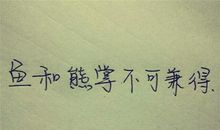 鱼和熊掌不可兼得